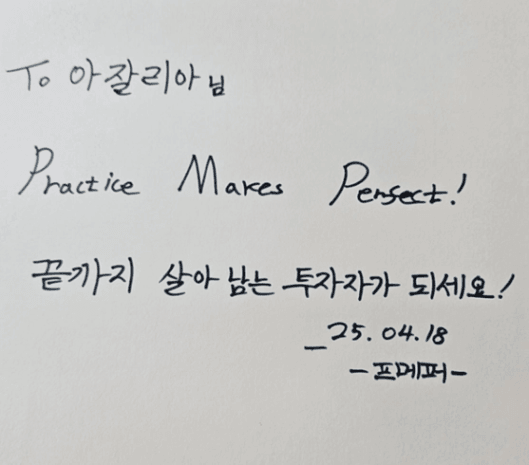 To 아잘리아님
Practice Makes Perfect!
끝까지 살아남는 투자자가 되세요!
_25.04.18
-프메퍼-